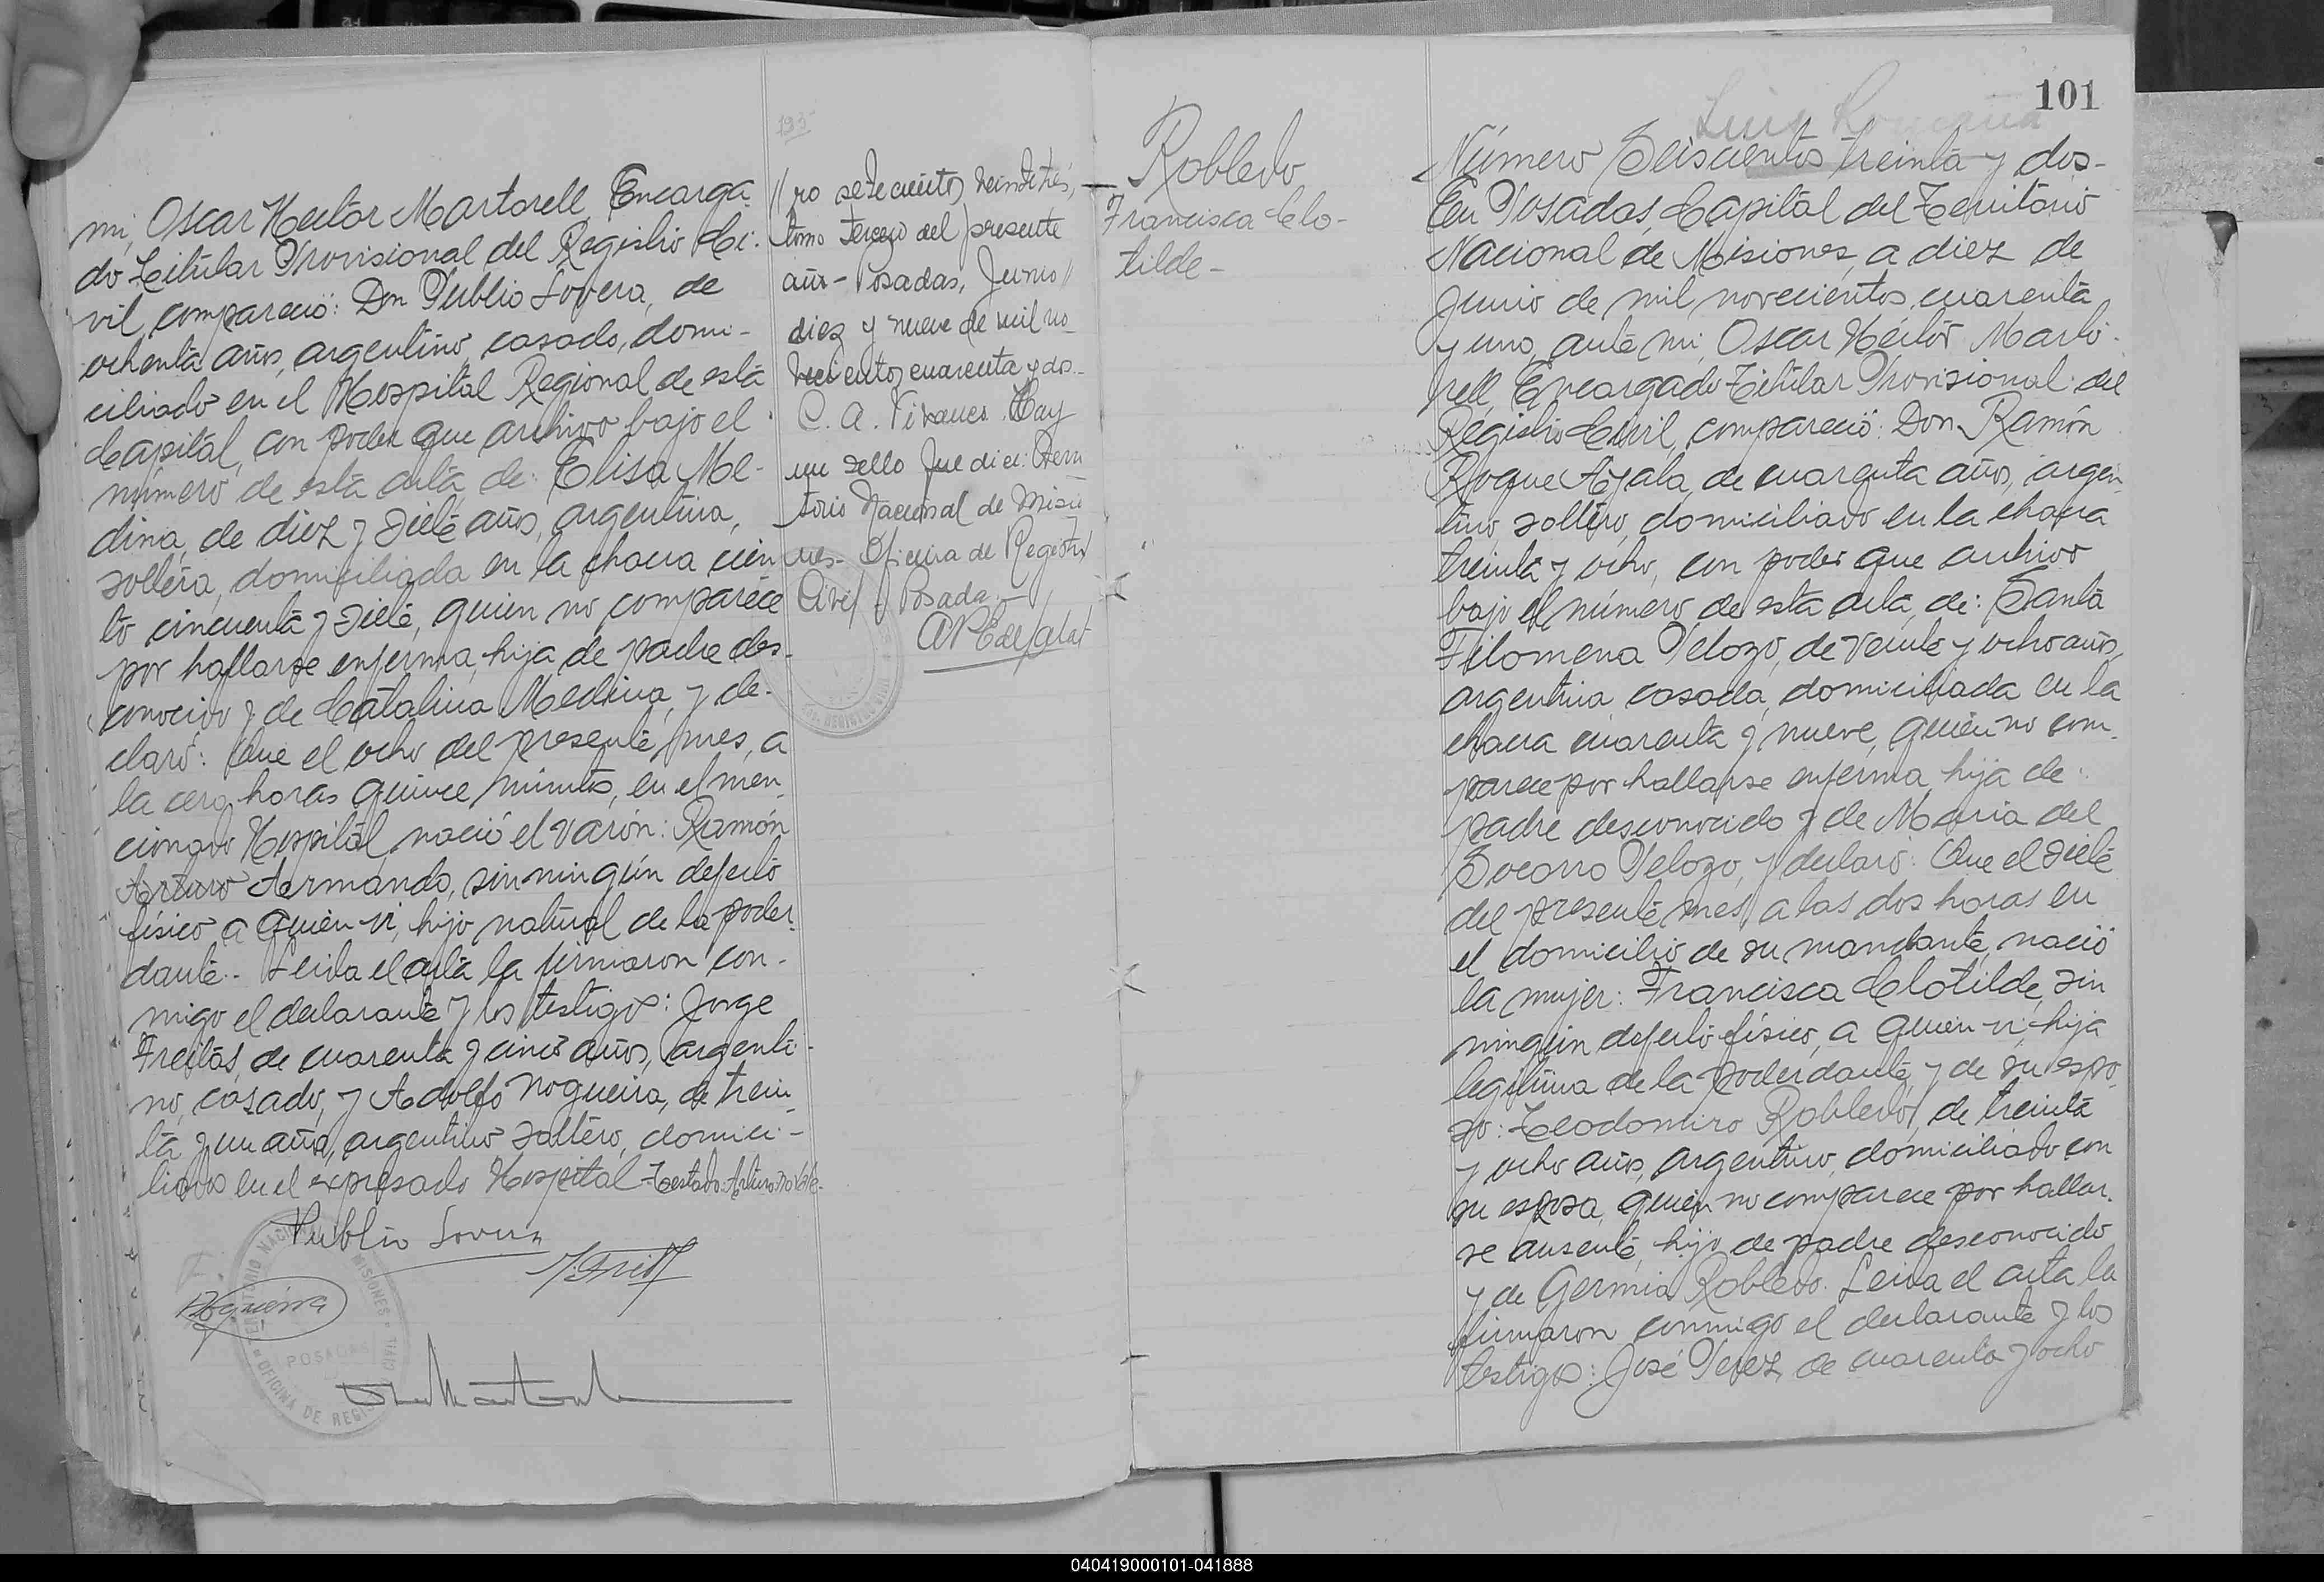 mi, Oscar Hector Martorell, Encarga-
do Titular Provisional del Registro Ci-
vil, compareció: Don Publio Lovera, de
ochenta años, argentino, casado, domi-
ciliado en el Hospital Regional de esta
Capital, con poder que archivo bajo el
número de esta acta, de: Elisa Me-
dina, de diez y siete años, argentina,
soltera, domiciliada en la chacra cien-
to cincuenta y siete, quien no comparece
por hallarse enferma, hija de padre des-
conocido y de Catalina Medina, y de-
claró: Que el ocho del presente mes, a
la cero horas quince minutos, en el men-
cionado Hospital, nació el varón: Ramón
Arturo Armando, sin ningún defecto
físico a quien vi, hijo natural de la poder-
dante.- Leida el acta la firmaron con-
migo el declarante y los testigos: Jorge
Freitas, de cuarenta y cinco años, argenti-
no, casado, y Adolfo Nogueira, de trein-
ta y un años, argentino soltero, domici-
liados en el expresado Hospital.-Testado: Arturo: no vale.-
Publio Lovera
J. Freit
ANogueira
TERRITORIO NACIONAL MISIONES
POSADAS
OFICINA DE REGISTRO CIVIL
193
//ro setecientos veintitrés,
tomo tercero del presente
año - Posadas, Junio//
diez y nueve de mil no-
vecientos cuarenta y dos.-
C. A. Vivanes. Hay
un sello que dice: Terri
torio Nacional de Misio
nes- Oficina de Registro
Civil Posadas.-
Robledo
Francisca Clo-
tilde-
101
Luis
Número Seiscientos treinta y dos-
En Posadas, Capital del Territorio
Nacional de Misiones, a diez de
Junio de mil novecientos cuarenta
y uno, ante mi, Oscar Héctor Marto-
rell, Encargado Titular Provisional del
Registro Civil, compareció: Don Ramón
Roque Ayala, de cuarenta años, argen-
tino, soltero, domiciliado en la chacra
treinta y ocho, con poder que archivo
bajo el número de esta acta, de: Santa
Filomena Velozo, de veinte y ocho años,
argentina, casada, domiciliada en la
chacra cuarenta y nueve, quien no com-
parece por hallarse enferma, hija de
padre desconocido y de Maria del
Socorro Velozo, y declaró: Que el siete
del presente mes, a las dos horas en
el domicilio de su mandante, nació
la mujer: Francisca Clotilde, sin
ningún defecto físico, a quien vi, hija
legitima de la poderdante, y de su espo-
so: Teodomiro Robledo, de treinta
y ocho años, argentino, domiciliado con
su esposa, quien no comparece por hallar-
se ausente, hijo de padre desconocido
y de Germia Robledo. Leida el acta la
firmaron conmigo el declarante y los
testigos: José Perez, de cuarenta y ocho
040419000101-041888